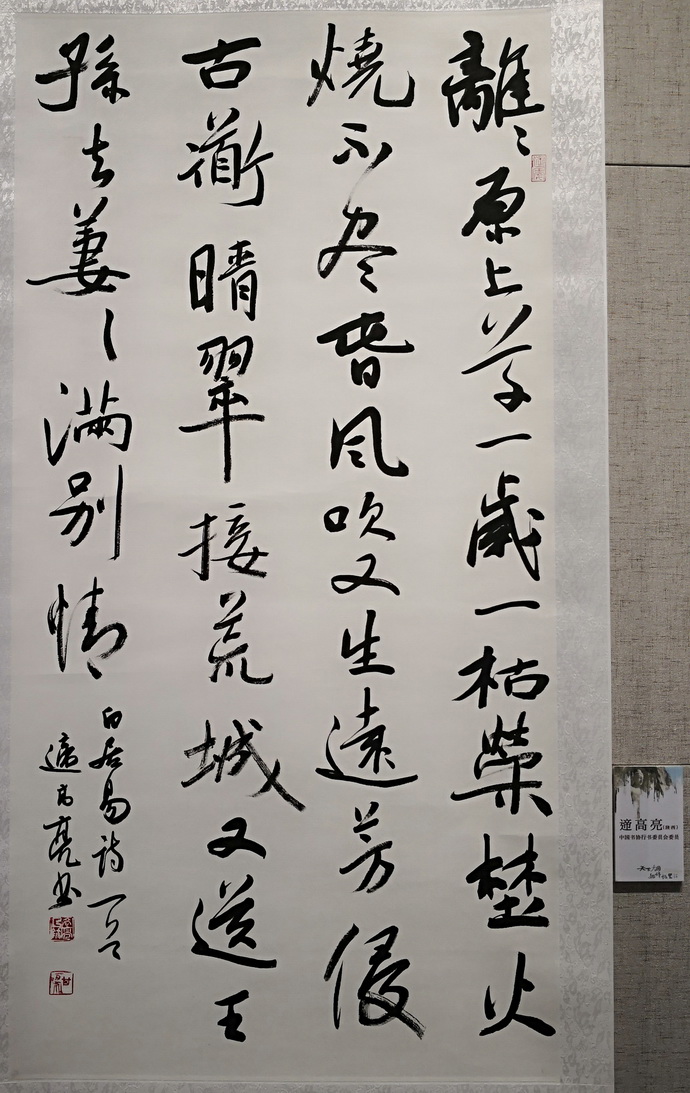 離〻原上草一歲一枯榮埜火
燒不尽旾風吹又生遠芳侵
古衟晴翠接荒城又送王
孫去萋〻滿別情
白居易詩一首
遆高亮书
遆高亮(陕西)
中国书协行书委员会委员